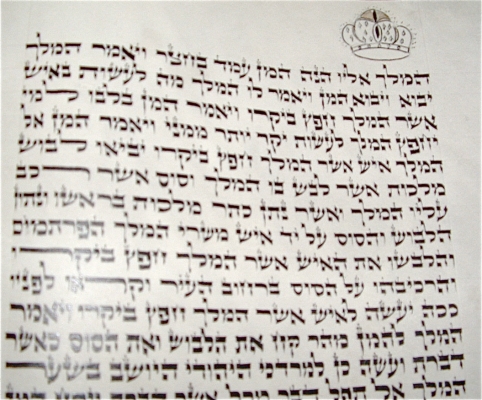 המלך אליו הנה המן עמד בחצר ויאמר המלך
יבוא ויבוא המן ויאמר לו המלך מה לעשות באיש
אשר המלך חפץ ביקרו ויאמר המן בלבו למי
יחפץ המלך לעשות יקר יותר ממני ויאמר המן אל
המלך איש אשר המלך חפץ ביקרו יביאו לבוש
מלכות אשר לבש בו המלך וסוס אשר רכב
עליו המלך ואשר נתן כתר מלכות בראשו ונתון
הלבוש והסוס על יד איש משרי המלך הפרתמים
והלבשו את האיש אשר המלך חפץ ביקרו
והרכיבהו על הסוס ברחוב העיר וקראו לפניו
ככה יעשה לאיש אשר המלך חפץ ביקרו ויאמר
המלך להמן מהר קח את הלבוש ואת הסוס כאשר
דברת ועשה כן למרדכי היהודי היושב בשער
המלך אל תפל דבר מכל אשר